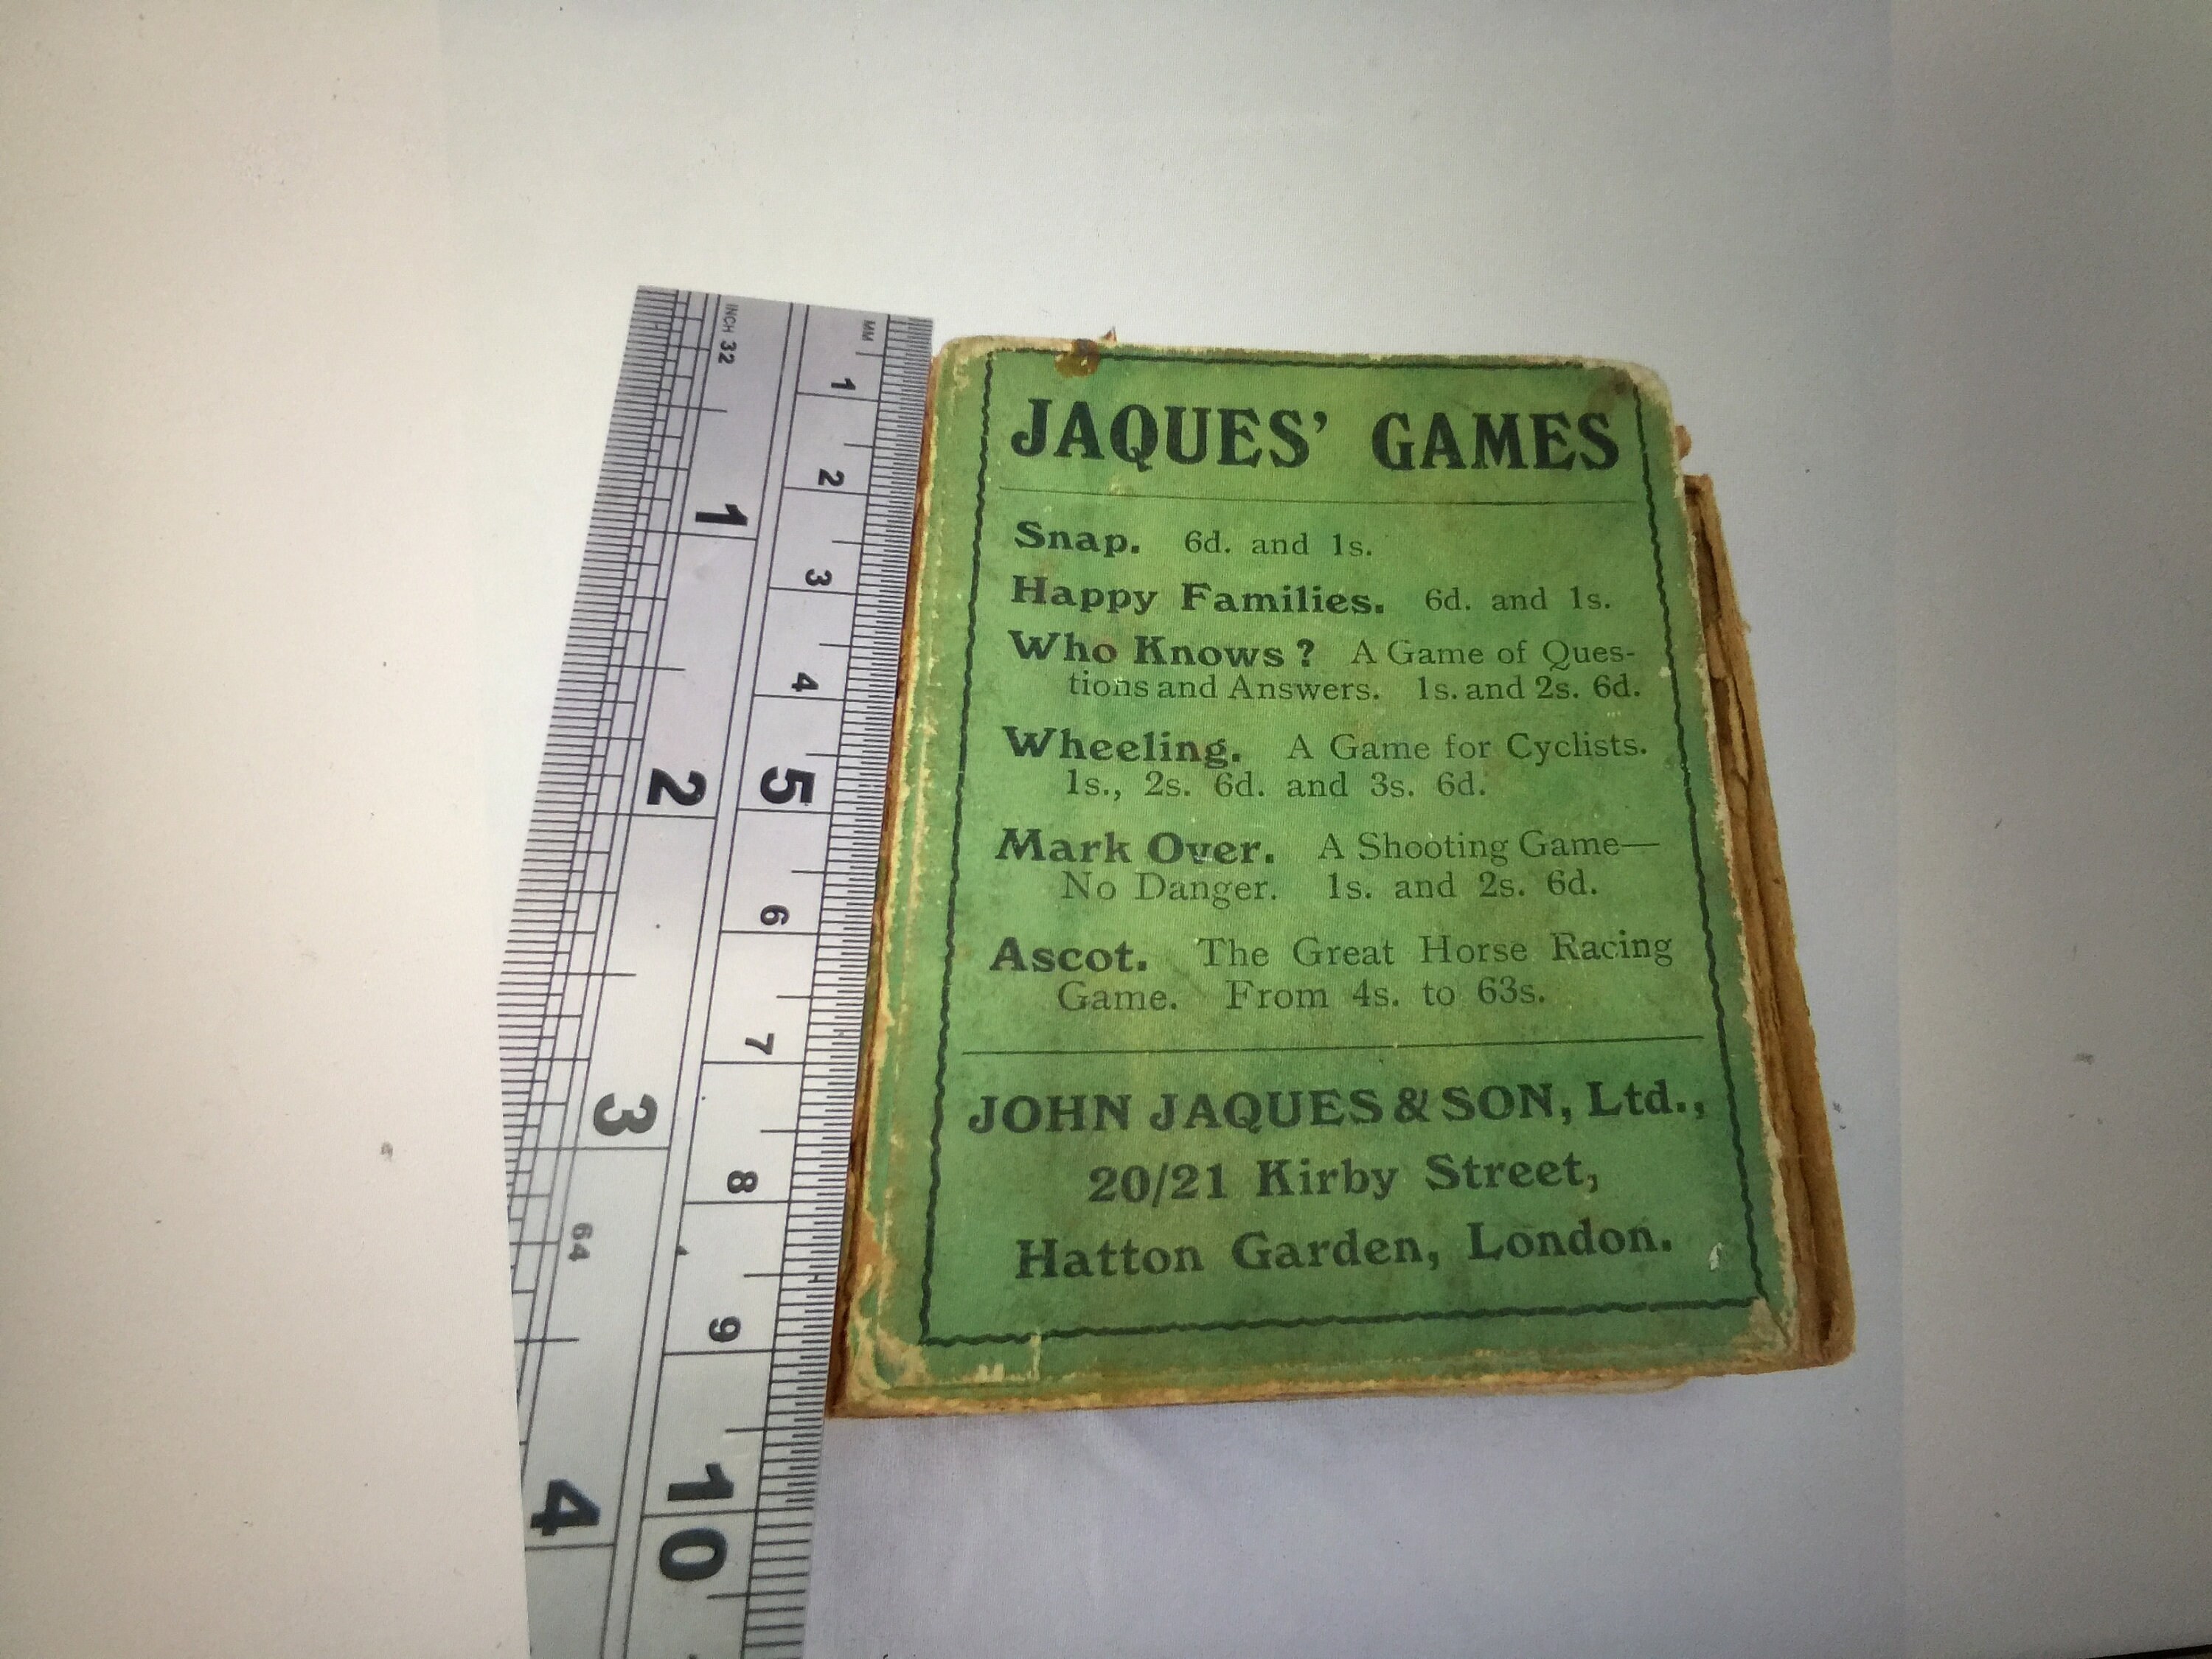 INCH 32
MM
1
2
3
4
5
6
7
8
9
10
1
2
3
64
4
JAQUES' GAMES
Snap. 6d. and 1s.
Happy Families. 6d. and 1s.
Who Knows? A Game of Ques-
tions and Answers. 1s. and 2s. 6d.
Wheeling. A Game for Cyclists.
1s., 2s. 6d. and 3s. 6d.
Mark Over. A Shooting Game—
No Danger. 1s. and 2s. 6d.
Ascot. The Great Horse Racing
Game. From 4s. to 63s.
JOHN JAQUES & SON, Ltd.,
20/21 Kirby Street,
Hatton Garden, London.